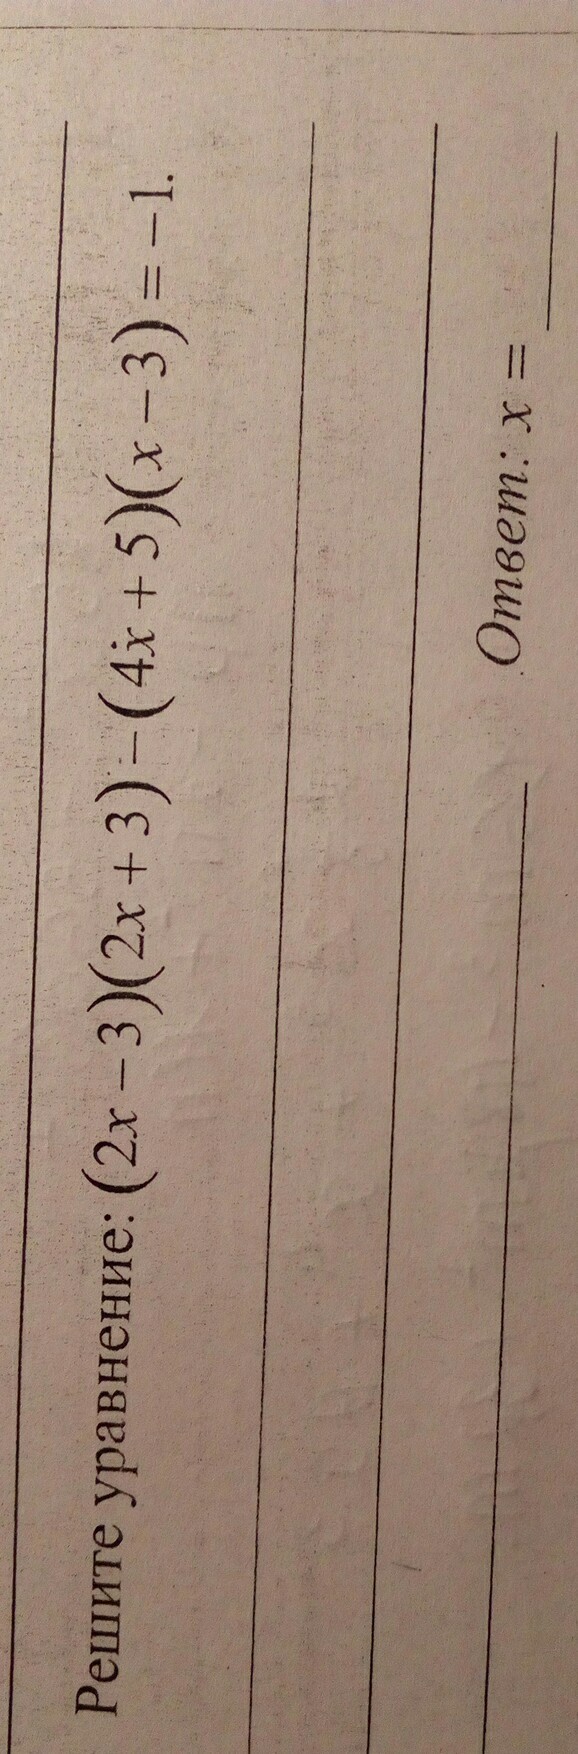 Решите уравнение: (2x − 3)(2x + 3) − (4x + 5)(x − 3) = −1.
Ответ: x =